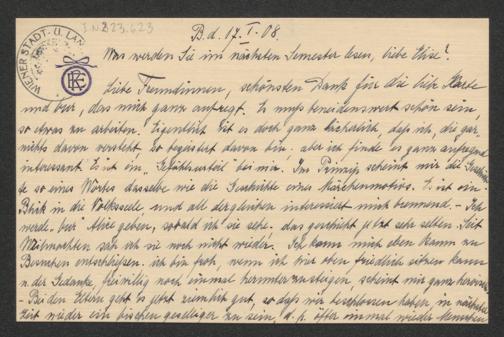 I N 223.623
B. d. 17. I. 08.
WIENER STADT- U. LAN
RE
Was werden Sie im nächsten Semester lesen, liebe Elise?
Liebe Freundinnen, schönsten Dank für die liebe Karte
und , das mich ganz aufregt. Es muss beneidenswert schön sein,
so etwas zu arbeiten. Eigentlich ist es doch ganz lächerlich, daß ich, die gar
nichts davon versteht so begeistert davon bin, aber ich finde es ganz aufregend
interessant. Es ist ein „Gefühlsurteil" bei mir. Im Prinzip scheint mir die
te so eines Wortes dasselbe wie die Geschichte eines Märchenmotivs. Es ist ein
Blick in die Volksseele, und all dergleichen interessiert mich brennend. – Ich
werde Alice geben, sobald ich sie sehe, das geschieht jetzt sehr selten. Seit
Weihnachten sah ich sie noch nicht wieder. Ich kann mich eben kaum zu
Besuchen entschließen. Ich bin froh, wenn ich hier oben friedlich sitzen kann
u. der Gedanke, freiwillig noch einmal herunterzusteigen, scheint mir ganz
– Bei den Eltern geht es jetzt ziemlich gut, so daß wir beschlossen haben, in nächster
Zeit wieder ein bischen geselliger zu sein, d. h. öfter einmal wieder Menschen